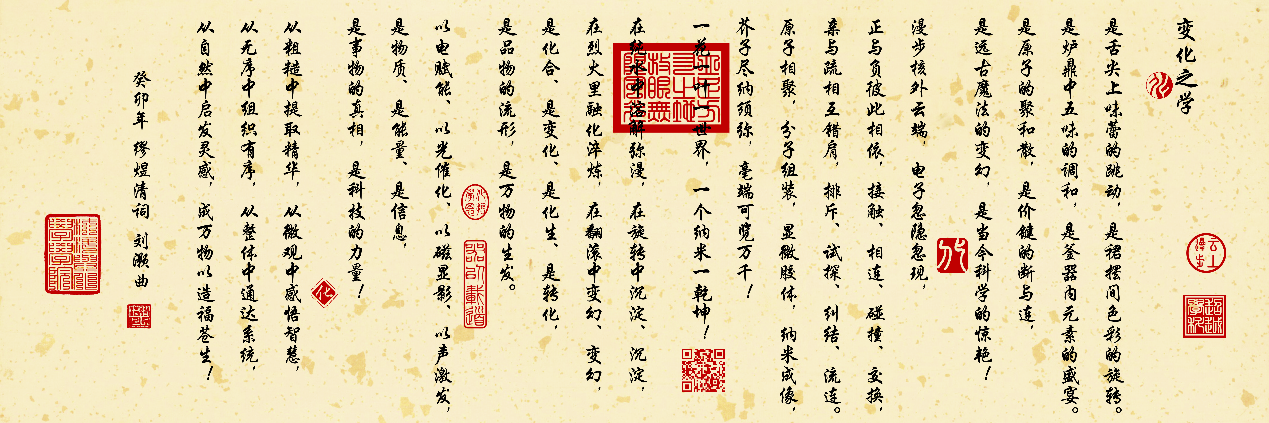 变化之学
是舌尖上味蕾的跳动，是裙摆间色彩的旋转。
是炉鼎中五味的调和，是釜器内元素的盛宴。
是原子的聚和散，是价键的断与连，
是远古魔法的变幻，是当今科学的惊艳！
漫步核外云端，电子忽隐忽现，
正与负彼此相依，接触、相连、碰撞、交换，
亲与疏相互错肩，排斥、试探、纠结、流连。
原子相聚，分子组装，显微胶体，纳米成像，
芥子尽纳须弥，毫端可览万千！
一花一叶一世界，一个纳米一乾坤！
在纯水中溶解弥漫，在旋转中沉淀、沉淀，
在烈火里融化淬炼，在翻滚中变幻、变幻，
是化合、是变化、是化生、是转化，
是品物的流形，是万物的生发。
以电赋能、以光催化、以磁显影、以声激发，
是物质、是能量、是信息，
是事物的真相，是科技的力量！
从粗糙中提取精华，从微观中感悟智慧，
从无序中组织有序，从整体中通达系统，
从自然中启发灵感，成万物以造福苍生！
癸卯年 缪煜清词 刘灏曲